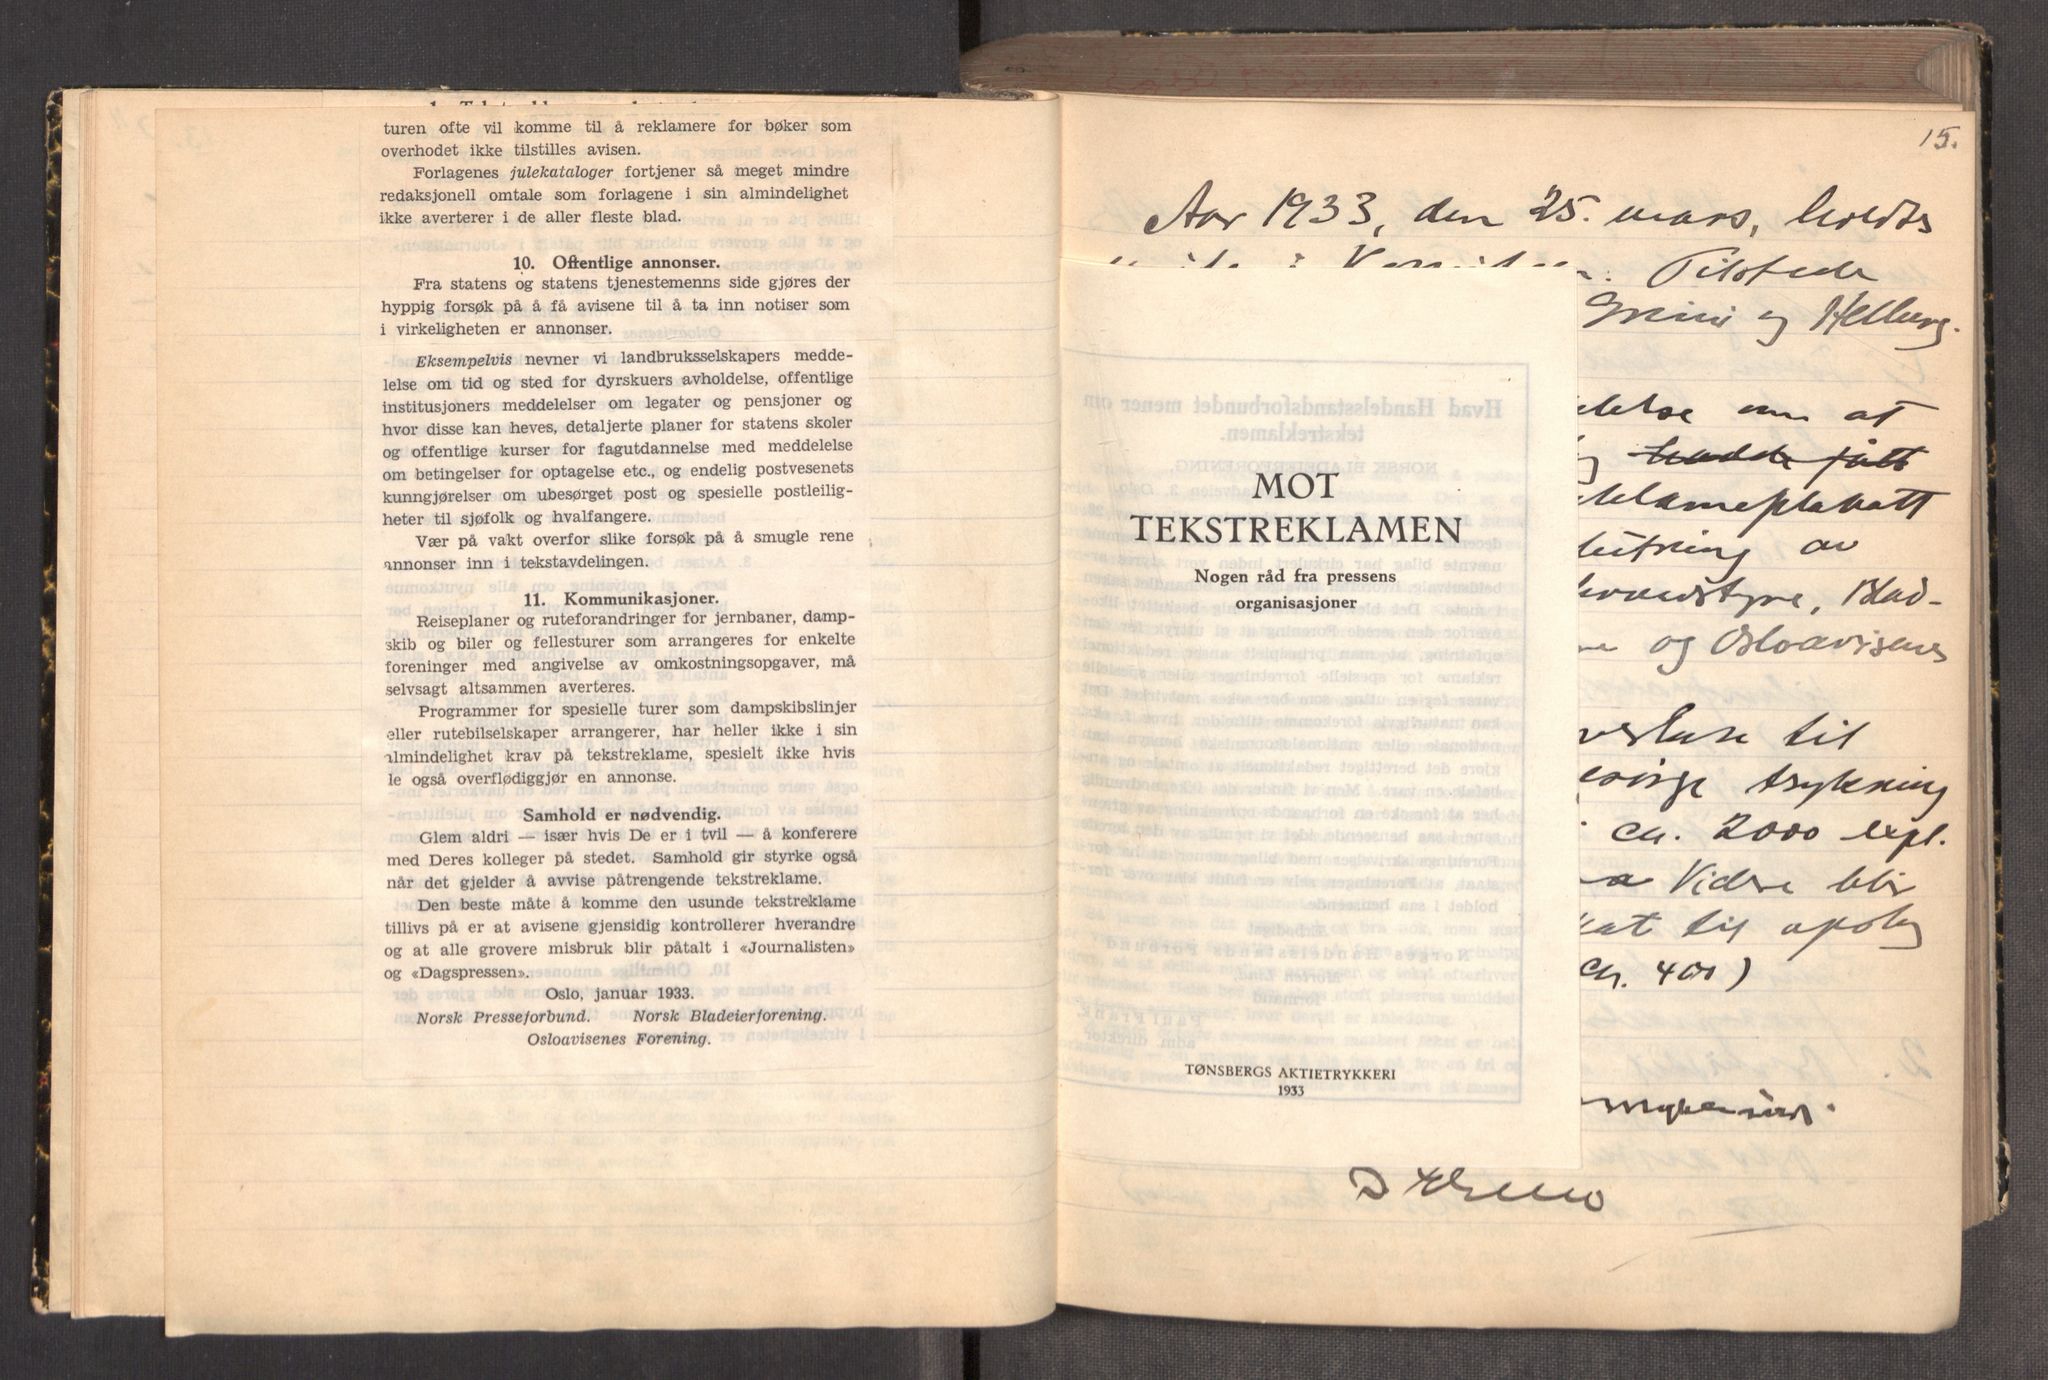 turen ofte vil komme til å reklamere for bøker som
overhodet ikke tilstilles avisen.
Forlagenes julekataloger fortjener så meget mindre
redaksjonell omtale som forlagene i sin almindelighet
ikke averterer i de aller fleste blad.
10. Offentlige annonser.
Fra statens og statens tjenestemenns side gjøres der
hyppig forsøk på å få avisene til å ta inn notiser som
i virkeligheten er annonser.
Eksempelvis nevner vi landbruksselskapers medde-
lelse om tid og sted for dyrskuers avholdelse, offentlige
institusjoners meddelelser om legater og pensjoner og
hvor disse kan heves, detaljerte planer for statens skoler
og offentlige kurser for fagutdannelse med meddelelse
om betingelser for optagelse etc., og endelig postvesenets
kunngjørelser om ubesørget post og spesielle postleilig-
heter til sjøfolk og hvalfangere.
Vær på vakt overfor slike forsøk på å smugle rene
annonser inn i tekstavdelingen.
11. Kommunikasjoner.
Reiseplaner og ruteforandringer for jernbaner, damp-
skib og biler og fellesturer som arrangeres for enkelte
foreninger med angivelse av omkostningsopgaver, må
selvsagt altsammen averteres.
Programmer for spesielle turer som dampskibslinjer
eller rutebilselskaper arrangerer, har heller ikke i sin
almindelighet krav på tekstreklame, spesielt ikke hvis
de også overflødiggjør en annonse.
Samhold er nødvendig.
Glem aldri — især hvis De er i tvil — å konferere
med Deres kolleger på stedet. Samhold gir styrke også
når det gjelder å avvise påtrengende tekstreklame.
Den beste måte å komme den usunde tekstreklame
tillivs på er at avisene gjensidig kontrollerer hverandre
og at alle grovere misbruk blir påtalt i «Journalisten»
og «Dagspressen».
Oslo, januar 1933.
Norsk Presseforbund. Norsk Bladeierforening.
Osloavisenes Forening.
15.
Aar 1933, den 25. mars, holdtes
Tilstede
Grini og Helberg.
delse om at
hadde fått
reklameplakatt
av
hovedstyre, Blad-
og Osloavisenes
til
trykning
ca. 2000 expl.
Videre blir
til opslag
ca. 400)
MOT
TEKSTREKLAMEN
Nogen råd fra pressens
organisasjoner
TØNSBERGS AKTIETRYKKERI
1933